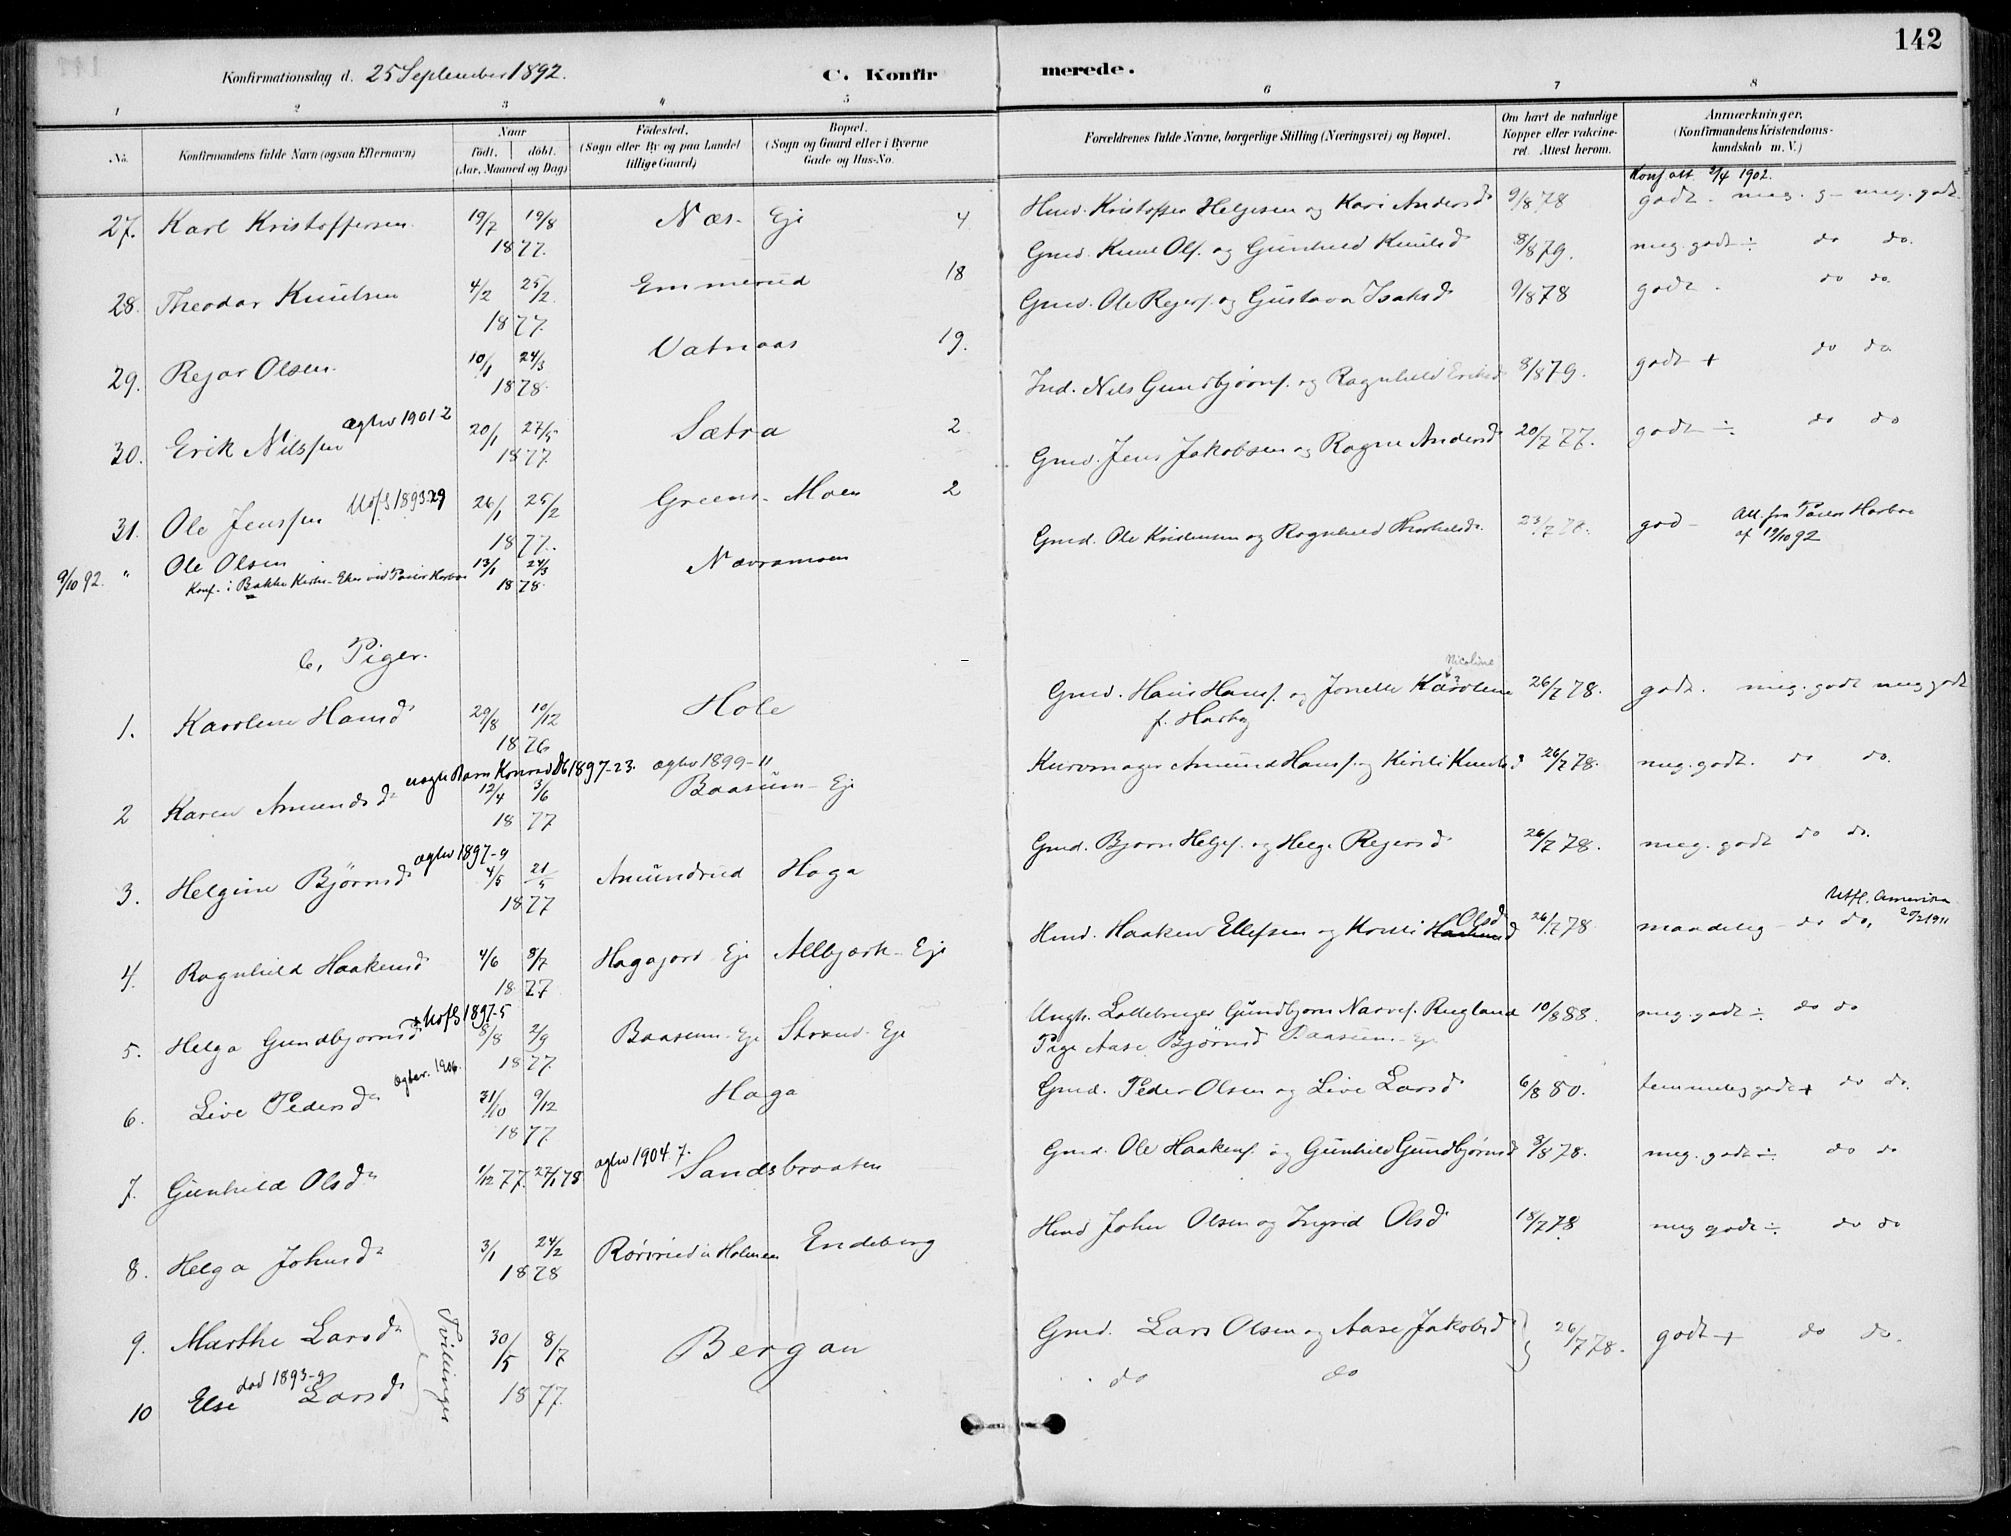 142
Konfirmationsdag d. 25 September 1892.
C. Konfirmerede.
1 2 3 4 5 6 7 8
No.
Konfirmandens fulde Navn (ogsaa Efternavn)
Naar
födt. döbt.
(Aar, Maaned og Dag)
Födested.
(Sogn eller By og paa Landet
tillige Gaard)
Bopæl.
(Sogn og Gaard eller i Byerne
Gade og Hus-No.
Forældrenes fulde Navne, borgerlige Stilling (Næringsvei) og Bopæl.
Om havt de naturlige
Kopper eller vakcine-
ret. Attest herom.
Anmærkninger,
(Konfirmandens Kristendoms-
kundskab m. V.)
Konf att 2/4 1902.
27. Karl Kristoffersen 19/7 19/8 Næs - Eje 4 Hmd. Kristoffer Helgesen og Kari Andersd 9/8 78 godt. meg. g - meg. godt
1877.
28. Theodor Knutsen 4/2 25/2 Emmerud 18 Gmd. Knut Ols. og Gunhild Knutsd 8/8 79. meg. godt ÷ do do.
1877.
29. Rejar Olsen 10/1 24/3 Vatnaas 19. Gmd. Ole Rejers. og Gustava Isaksd 9/8 78 godt. do do.
1878.
30. Erik Nilssen ægtev 1901 2 20/1 27/5 Sætra 2 Ind. Nils Gundbjørns. og Ragnhild Eriksd 8/8 79. godt + do do
1877.
31. Ole Jenssen Utfl 1893.29 26/1 25/2 Green - Moen 2 Gmd. Jens Jakobsen og Ragne Andersd 20/7 77. godt ÷ do do
1877.
9/10 92. " Ole Olsen 13/1 24/3 Nævramoen Gmd. Ole Kristensen og Ragnhild Thorkelsd. 23/7 78. god - Att. fra Pastor Harboe
Konf. i Bakke Kirke - Eker ved Pastor Harboe 1878. af 19/10 92
b, Piger.
1. Karolene Hansd 29/8 10/12 Hole Gmd. Hans Hans. og Jonette Karolene 26/7 78. godt. meg. godt meg godt
Nicoline
1876 f. Harby
uægte Barn Konrad Db 1897-23. ægtev 1899-11
2 Karen Amundsd 12/4 3/6 Baasum - Eje Kurvmager Amund Hans. og Kirsti Knutsd 26/7 78. meg. godt. do do.
1877
ægtev 1897-9
3. Helgine Bjørnsd 4/5 21/5 Amundrud Haga Gmd. Bjørn Helges. og Helge Rejersd 26/7 78. meg. godt do do.
1877
Utfl. Amerika
20/2 1911
4. Ragnhild Haakensd 4/6 8/7 Hagajord - Eje Allbjærk - Eje Hmd. Haaken Ellefsen og Kristi Olsd 26/7 78 maadelig - do do,
1877
Utfl 1897-5
5. Helga Gundbjørnsd 8/8 2/9 Baasum - Eje Strand - Eje Ungk. Loddebruger Gundbjørn Narves. Rugland 10/8 88. meg. godt ÷ do do
1877. Pige Aase Bjørnsd Baasum - Eje
ægtev. 1906.
6. Live Pedersd 31/10 9/12 Haga Gmd. Peder Olsen og Live Larsd 6/8 80. temmelig godt + do do.
1877.
7. Gunhild Olsd 1/12 77. 27/1 78 ægtev 1904.7. Sandsbraaten Gmd. Ole Haakens. og Gunhild Gundbjørnsd 3/8 78. meg. godt ÷ do do
8. Helga Johnsd 3/1 24/2 Rørvried u Holmen Endeberg Hmd John Olsen og Ingrid Olsd 18/7 78. meg godt ÷ do do
1878
9. Marthe Larsd 30/5 8/7 Bergan Gmd. Lars Olsen og Aase Jakobsd 26/7 78. godt + do do.
Tvillinger
død 1893-9
10 Else Larsd 1877. do do